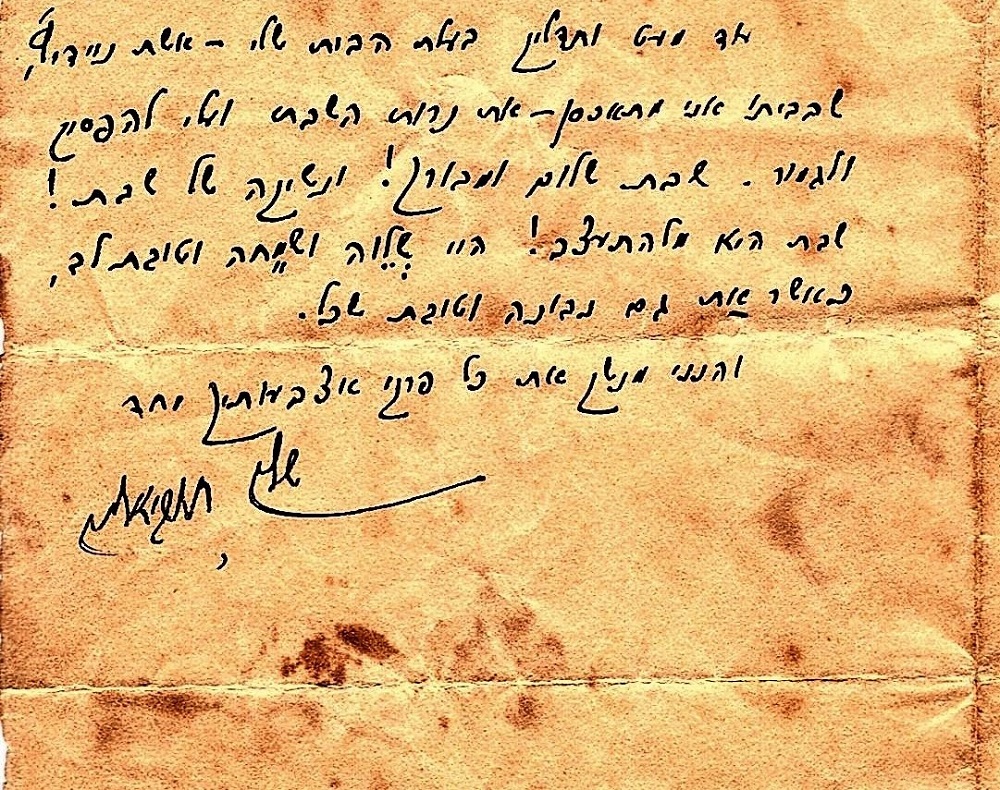 עד מעט ותדליק בעלת הבית שלי – אשת ניידיץ,
שבביתו אני מתאכסן – את נרות השבת ועלי להפסיק
ולגמור. שבת שלום ומבורך! ונשיקה של שבת!
שבת היא מלהתעצב! היי שְלֵוה ושמֵחה וטובת לב,
כאשר את גם נבונה וטובת שכל.
והנני מנשק את כל פרקי אצבעותיך יחד
שלך